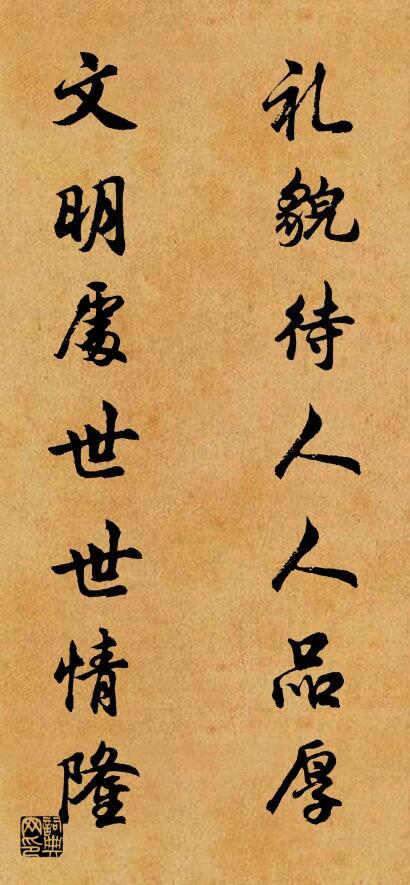 礼貌待人人品厚
文明處世世情隆
詞典网印